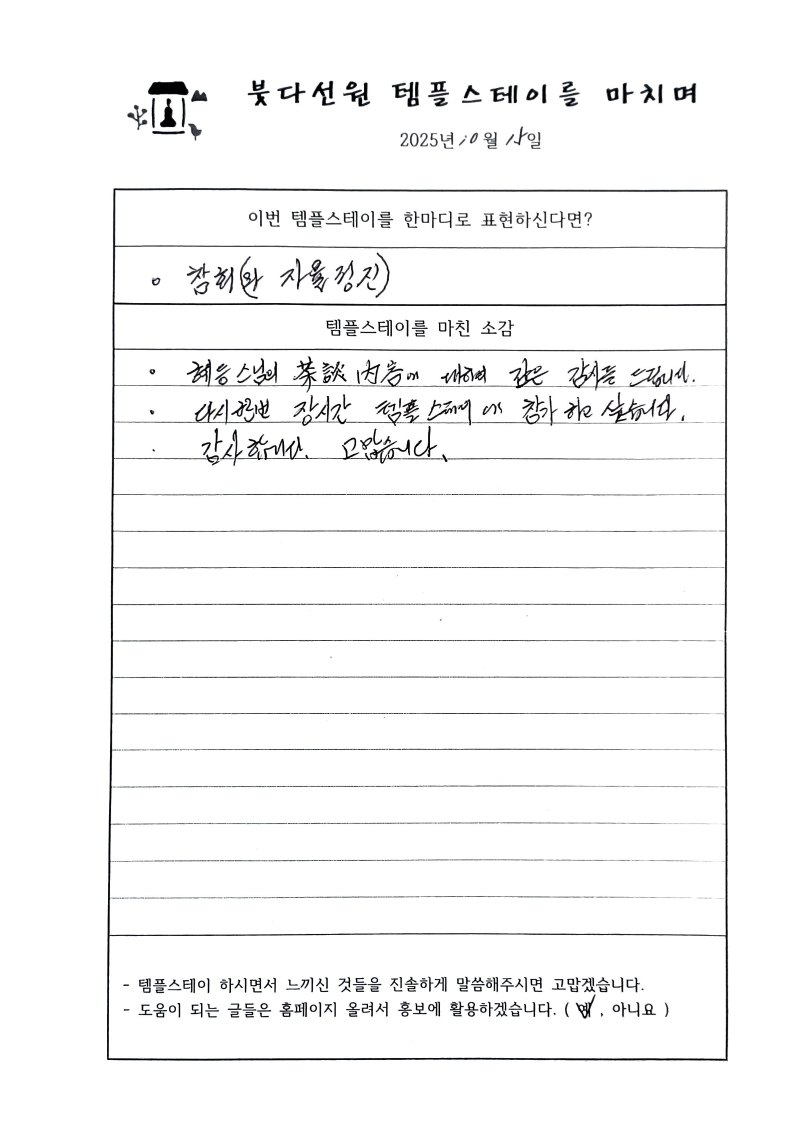 붓다선원 템플스테이를 마치며
2025년 10월 15일
이번 템플스테이를 한마디로 표현하신다면?
o 참회(와 자율정진)
템플스테이를 마친 소감
o 혜등스님의 茶談 内容에 대하여 깊은 감사를 드립니다.
· 다시한번 장시간 템플스테이에 참가하고 싶습니다.
· 감사합니다. 고맙습니다.
- 템플스테이 하시면서 느끼신 것들을 진솔하게 말씀해주시면 고맙겠습니다.
- 도움이 되는 글들은 홈페이지 올려서 홍보에 활용하겠습니다. ( 예 , 아니요 )